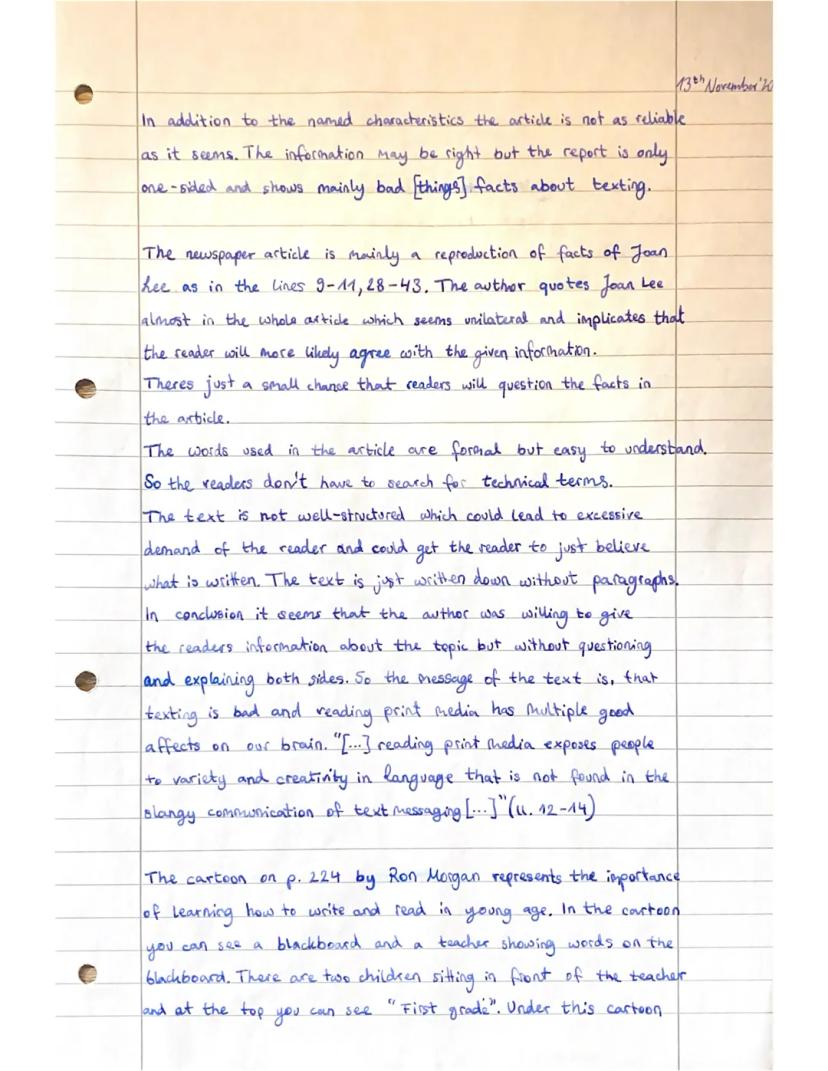 13th November '20
In addition to the named characteristics the article is not as reliable
as it seems. The information may be right but the report is only
one-sided and shows mainly bad [things] facts about texting.
The newspaper article is mainly a reproduction of facts of Joan
Lee as in the lines 9-11, 28-43. The author quotes Joan Lee
almost in the whole article which seems unilateral and implicates that
the reader will more likely agree with the given information.
Theres just a small chance that readers will question the facts in
the article.
The words used in the article are formal but easy to understand.
So the readers don't have to search for technical terms.
The text is not well-structured which could lead to excessive
demand of the reader and could get the reader to just believe
what is written. The text is just written down without paragraphs.
In conclusion it seems that the author was willing to give
the readers information about the topic but without questioning
and explaining both sides. So the message of the text is, that
texting is bad and reading print media has multiple good
affects on our brain. "[...] reading print media exposes people
to variety and creativity in language that is not found in the
slangy communication of text messaging [...]" (ll. 12-14)
The cartoon on p. 224 by Ron Morgan represents the importance
of learning how to write and read in young age. In the cartoon
you can see a blackboard and a teacher showing words on the
blackboard. There are two children sitting in front of the teacher
and at the top you can see "First grade". Under this cartoon